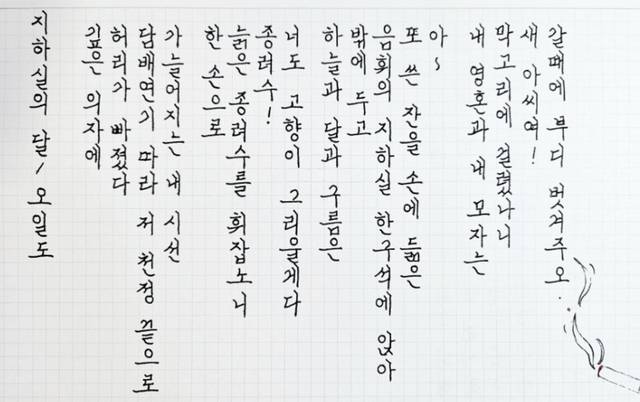 지하실의 달/오일도
깊은 의자에
허리가 빠졌다
담배연기 따라 저 천정 끝으로
가늘어지는 내 시선
한 손으로
늙은 종려수를 휘잡노니
종려수!
너도 고향이 그리울게다
하늘과 달과 구름은
밖에 두고
음회의 지하실 한구석에 앉아
또 쓴 잔을 손에 듦은
아~
내 영혼과 내 모자는
막고리에 걸렸나니
새 아씨여!
갈때에 부디 벗겨주오.